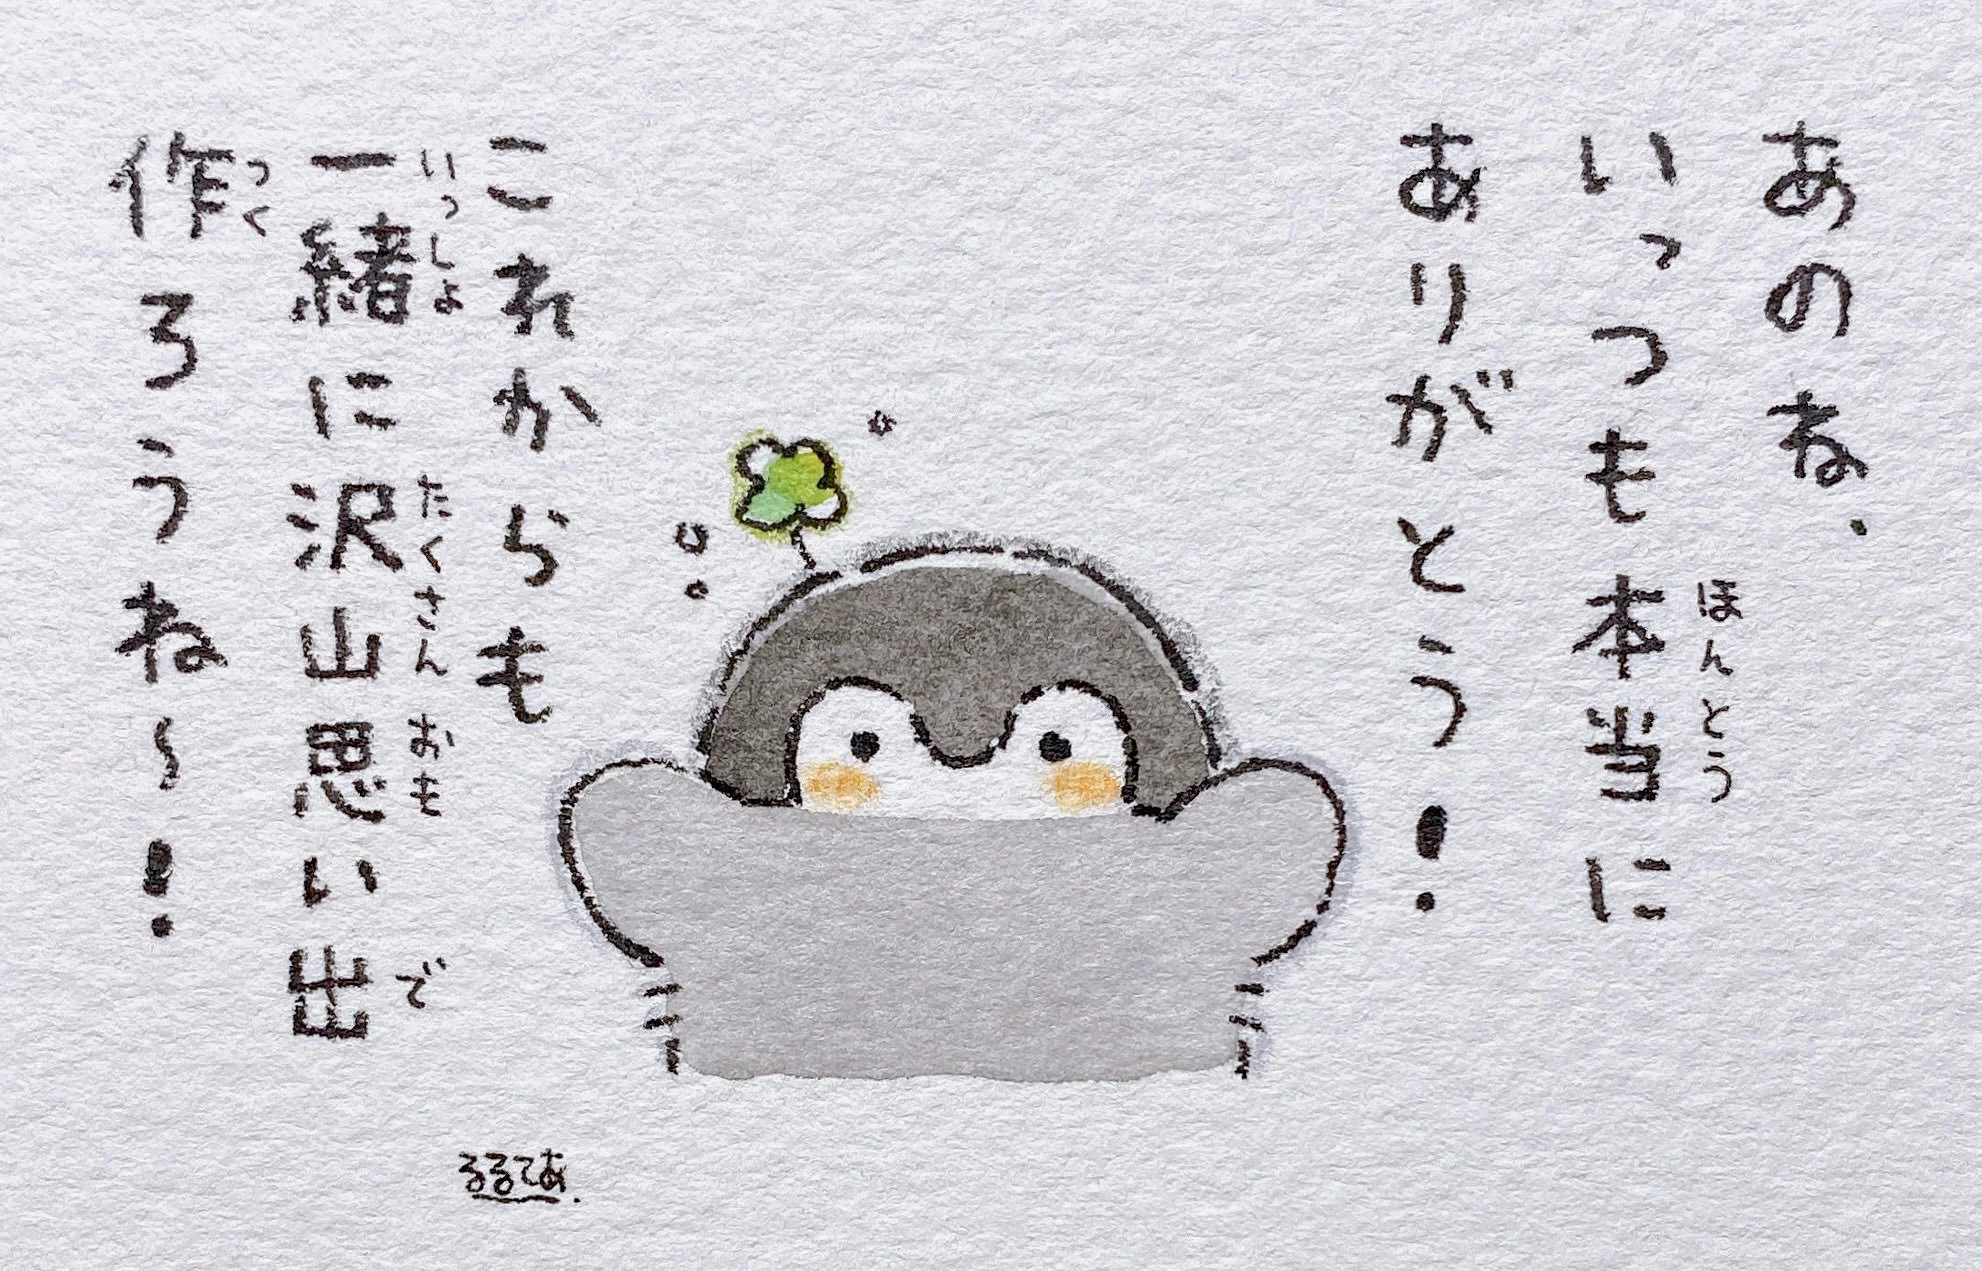 あのね、
いっつも本当に
ほんとう
ありがとう!
これからも
一緒に沢山思い出
いっしょ たくさん おも で
作ろうね〜!
つく
るるてあ.